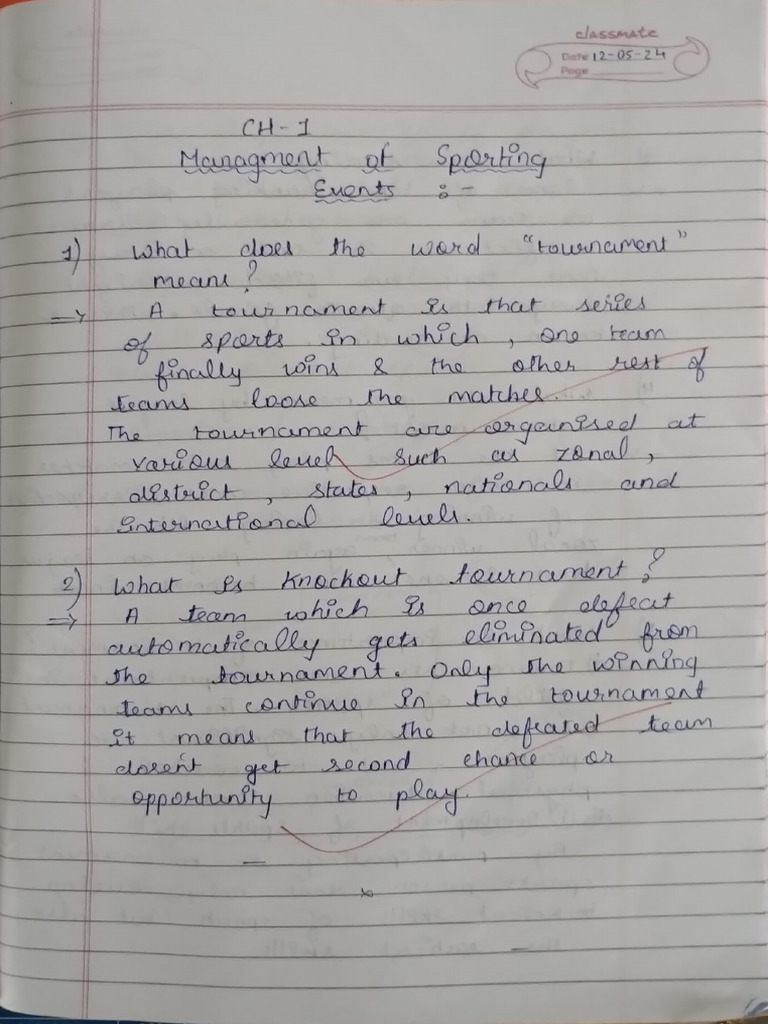 classmate
Date 12-05-24
Page
CH-1
Managment of Sporting
Events :-
1) What does the word "tournament"
means?
⇒ A tournament is that series
of sports in which, one team
finally wins & the other rest of
teams loose the matches.
The tournament are organised at
various level such as zonal,
district, states, nationals and
international levels.
2) What is Knockout tournament?
⇒ A team which is once defeat
automatically gets eliminated from
the tournament. Only the winning
teams continue in the tournament
it means that the defeated team
dosent get second chance or
opportunity to play.